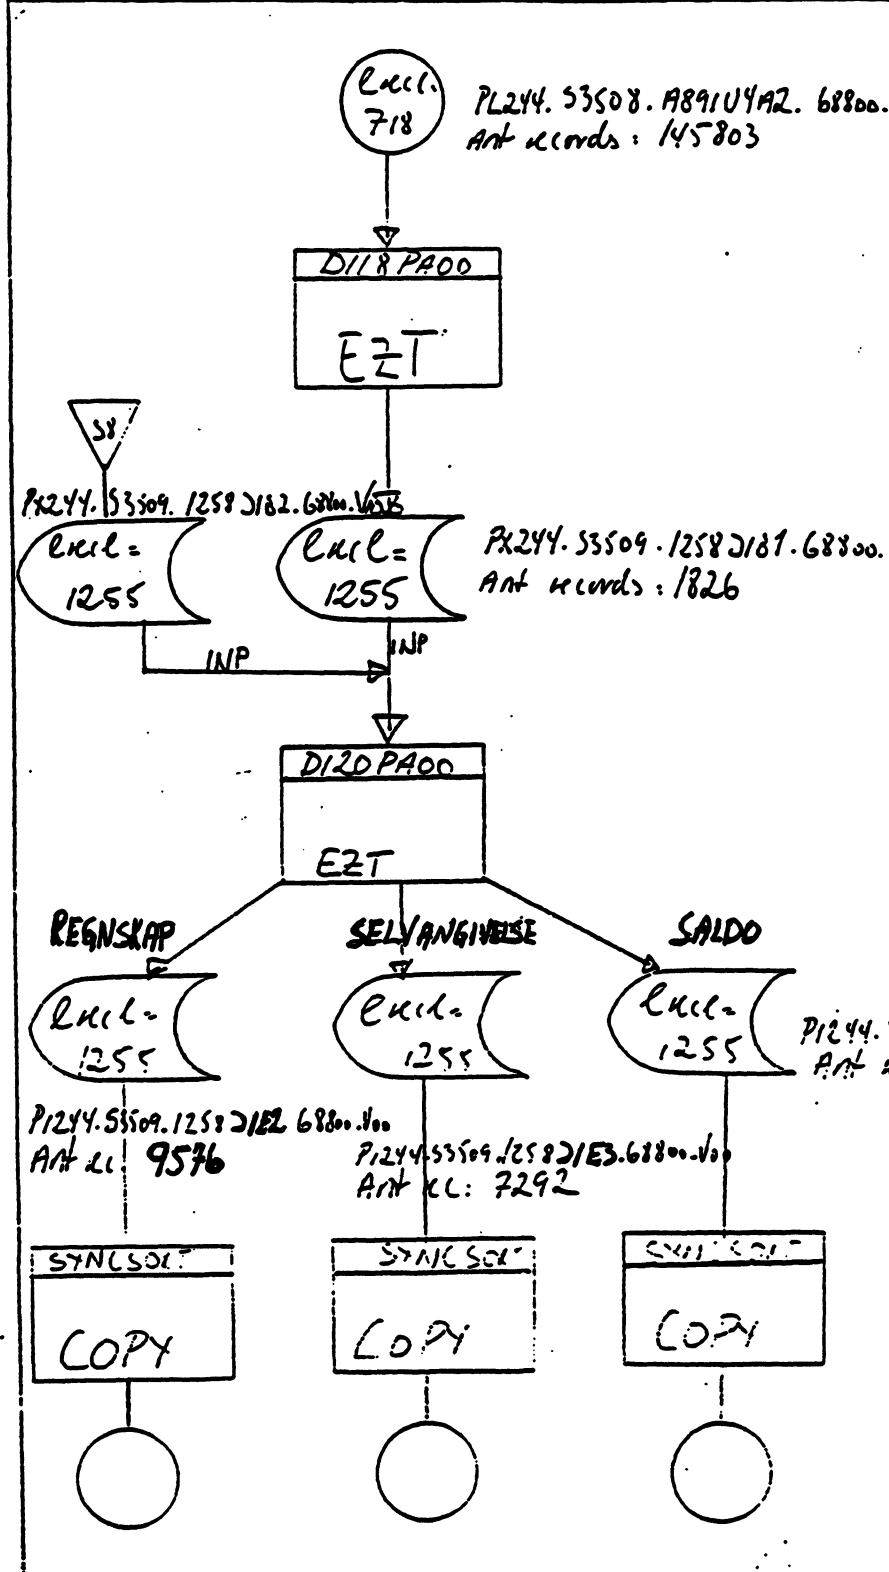 lrecl.
718
PL244.S3508.A891U4A2.68800.
Ant records: 145803
D118PA00
EZT
S8
PX244.S3509.1258D182.68800.
lrecl=
1255
lrecl=
1255
PX244.S3509.1258D181.68800.
Ant records: 1826
INP
INP
D120PA00
EZT
REGNSKAP
SELVANGIVELSE
SALDO
lrecl=
1255
lrecl=
1255
lrecl=
1255
P1244.
Ant
P1244.S3509.1258D1E2.68800.V00
Ant rec: 9576
P1244.S3509.1258D1E3.68800.V00
Ant rec: 7292
SYNCSORT
SYNCSORT
SYNCSORT
COPY
COPY
COPY